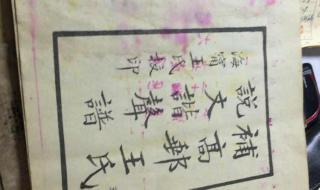 補高郵王氏
說文諧聲譜
海甯王氏印